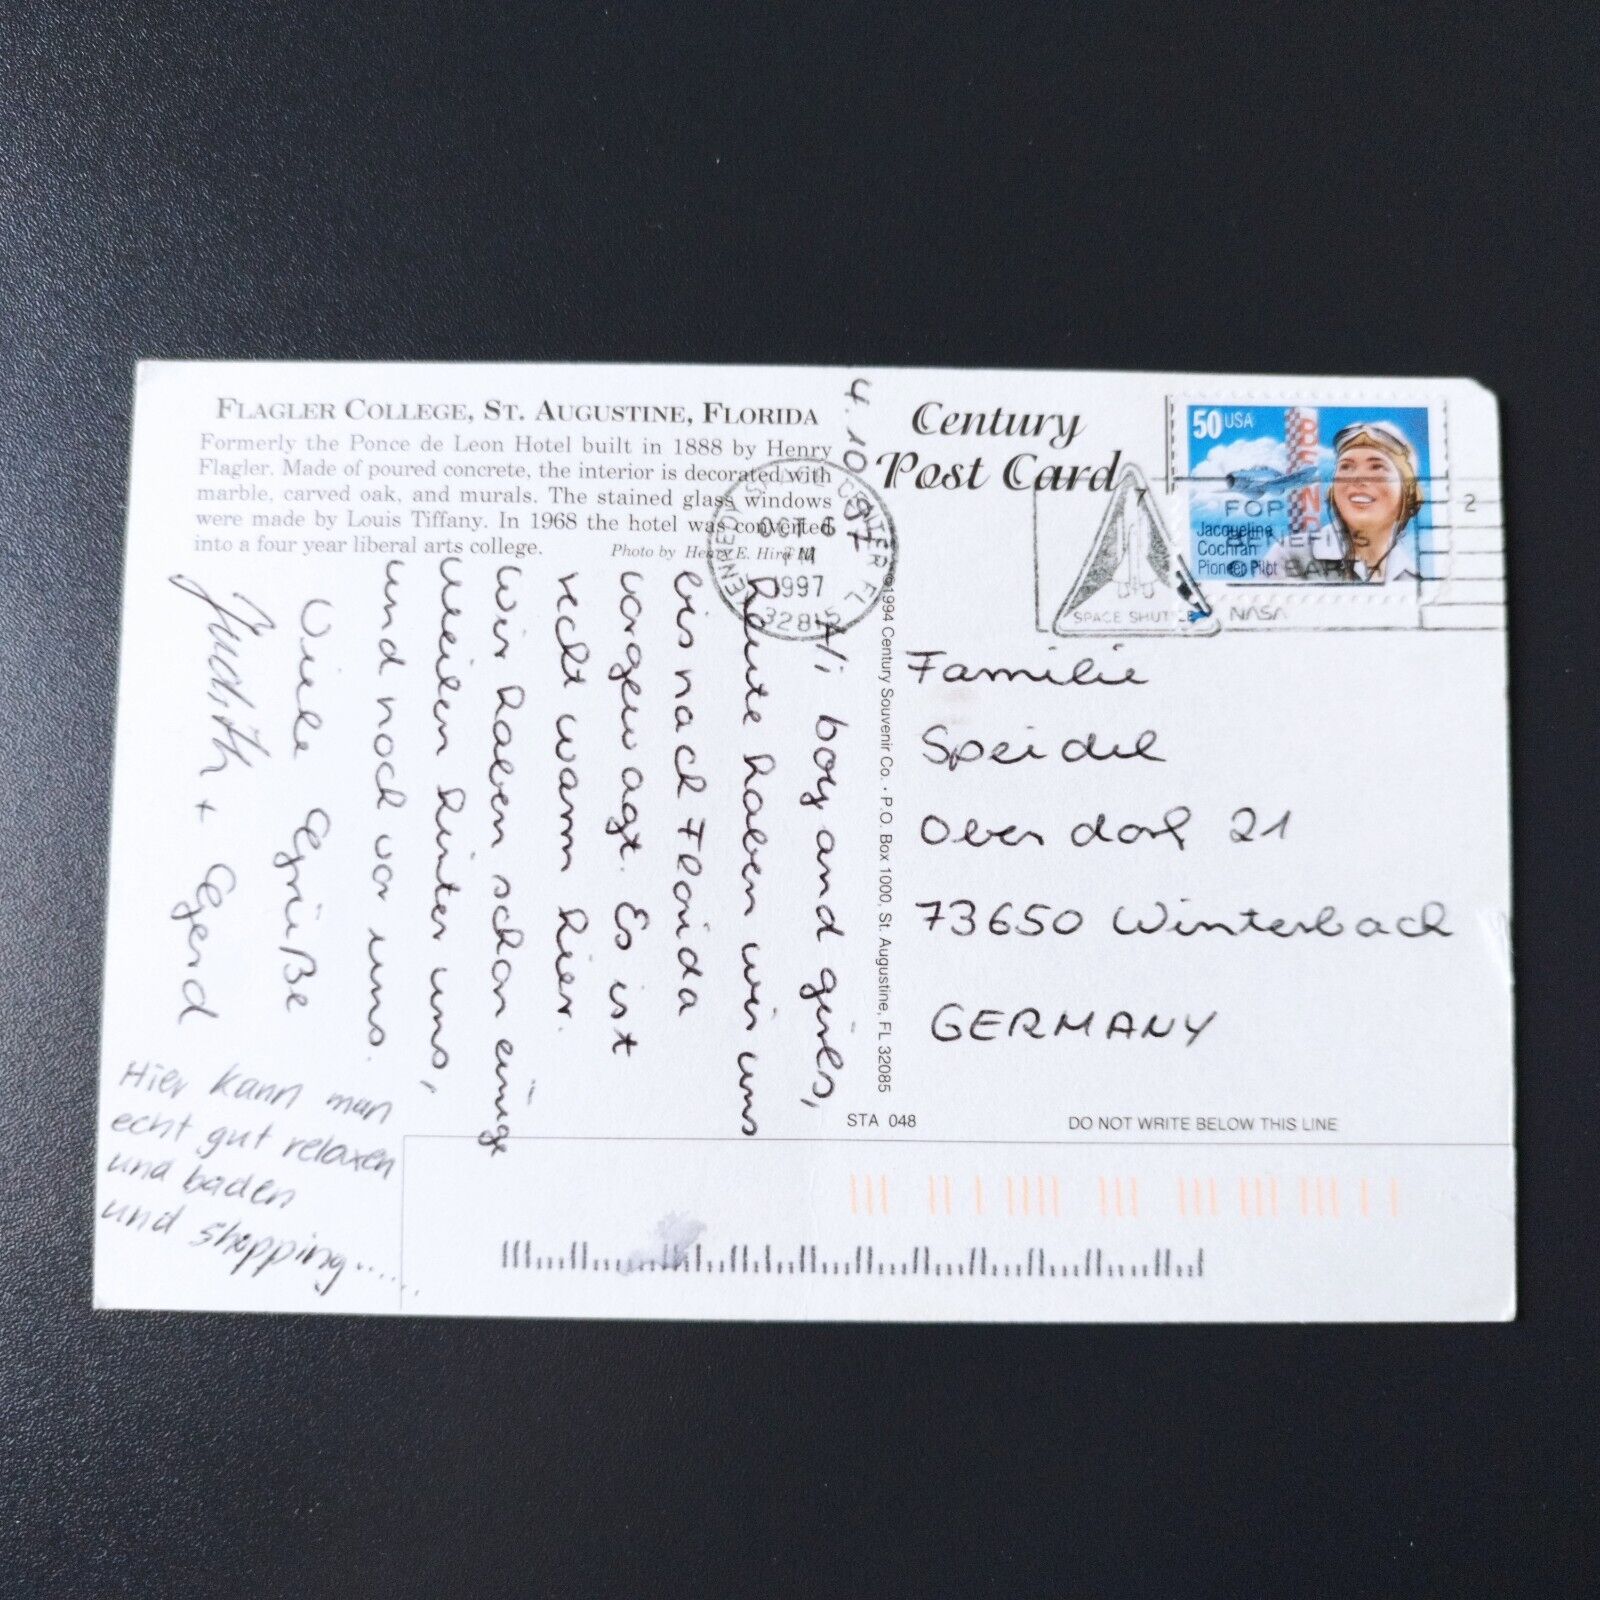 FLAGLER COLLEGE, ST. AUGUSTINE, FLORIDA
Formerly the Ponce de Leon Hotel built in 1888 by Henry
Flagler. Made of poured concrete, the interior is decorated with
marble, carved oak, and murals. The stained glass windows
were made by Louis Tiffany. In 1968 the hotel was converted
into a four year liberal arts college.
Photo by Henry E. Hird
4.10.97
Hi boy and girls,
heute haben wir uns
bis nach Florida
vorgewagt. Es ist
recht warm hier.
Wir haben schon einige
Meilen hinter uns,
und noch vor uns.
Viele Grüße
Judith + Gerd
Hier kann man
echt gut relaxen
und baden
und shopping......
Century
Post Card
©1994 Century Souvenir Co. · P.O. Box 1000, St. Augustine, FL 32085
KENNEDY SPACE CENTER FL
OCT 6
PM
1997
32815
SPACE SHUTTLE
FOR
BENEFITS
ON EARTH
NASA
2
50 USA
Jacqueline
Cochran
Pioneer Pilot
Familie
Speidel
Oberdorf 21
73650 Winterbach
GERMANY
STA 048
DO NOT WRITE BELOW THIS LINE